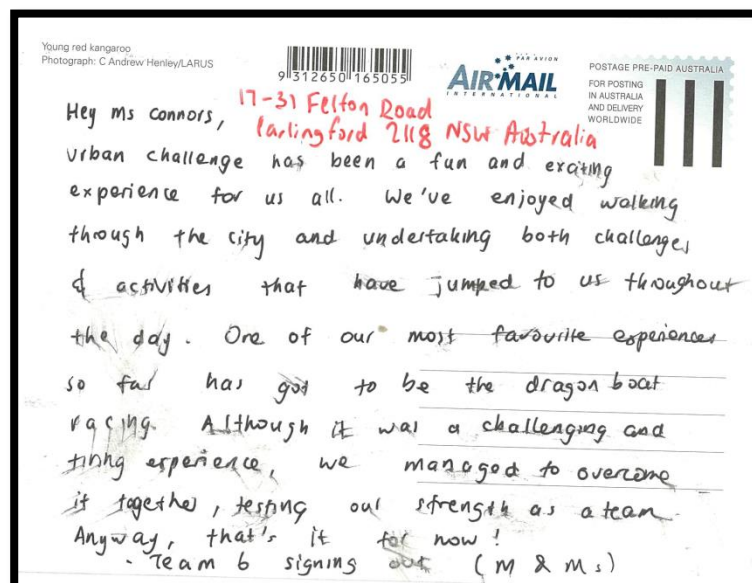 Young red kangaroo
Photograph: C Andrew Henley/LARUS
9 312650 165055
PAR AVION
AIR MAIL
INTERNATIONAL
POSTAGE PRE-PAID AUSTRALIA
FOR POSTING
IN AUSTRALIA
AND DELIVERY
WORLDWIDE
Hey Ms Connors,
17-31 Felton Road
Carlingford 2118 NSW Australia
urban challenge has been a fun and exciting
experience for us all. We've enjoyed walking
through the city and undertaking both challenges
& activities that have jumped to us throughout
the day. One of our most favourite experiences
so far has got to be the dragon boat
racing. Although it was a challenging and
tiring experience, we managed to overcome
it together, testing our strength as a team.
Anyway, that's it for now!
- Team 6 signing out (M & Ms)